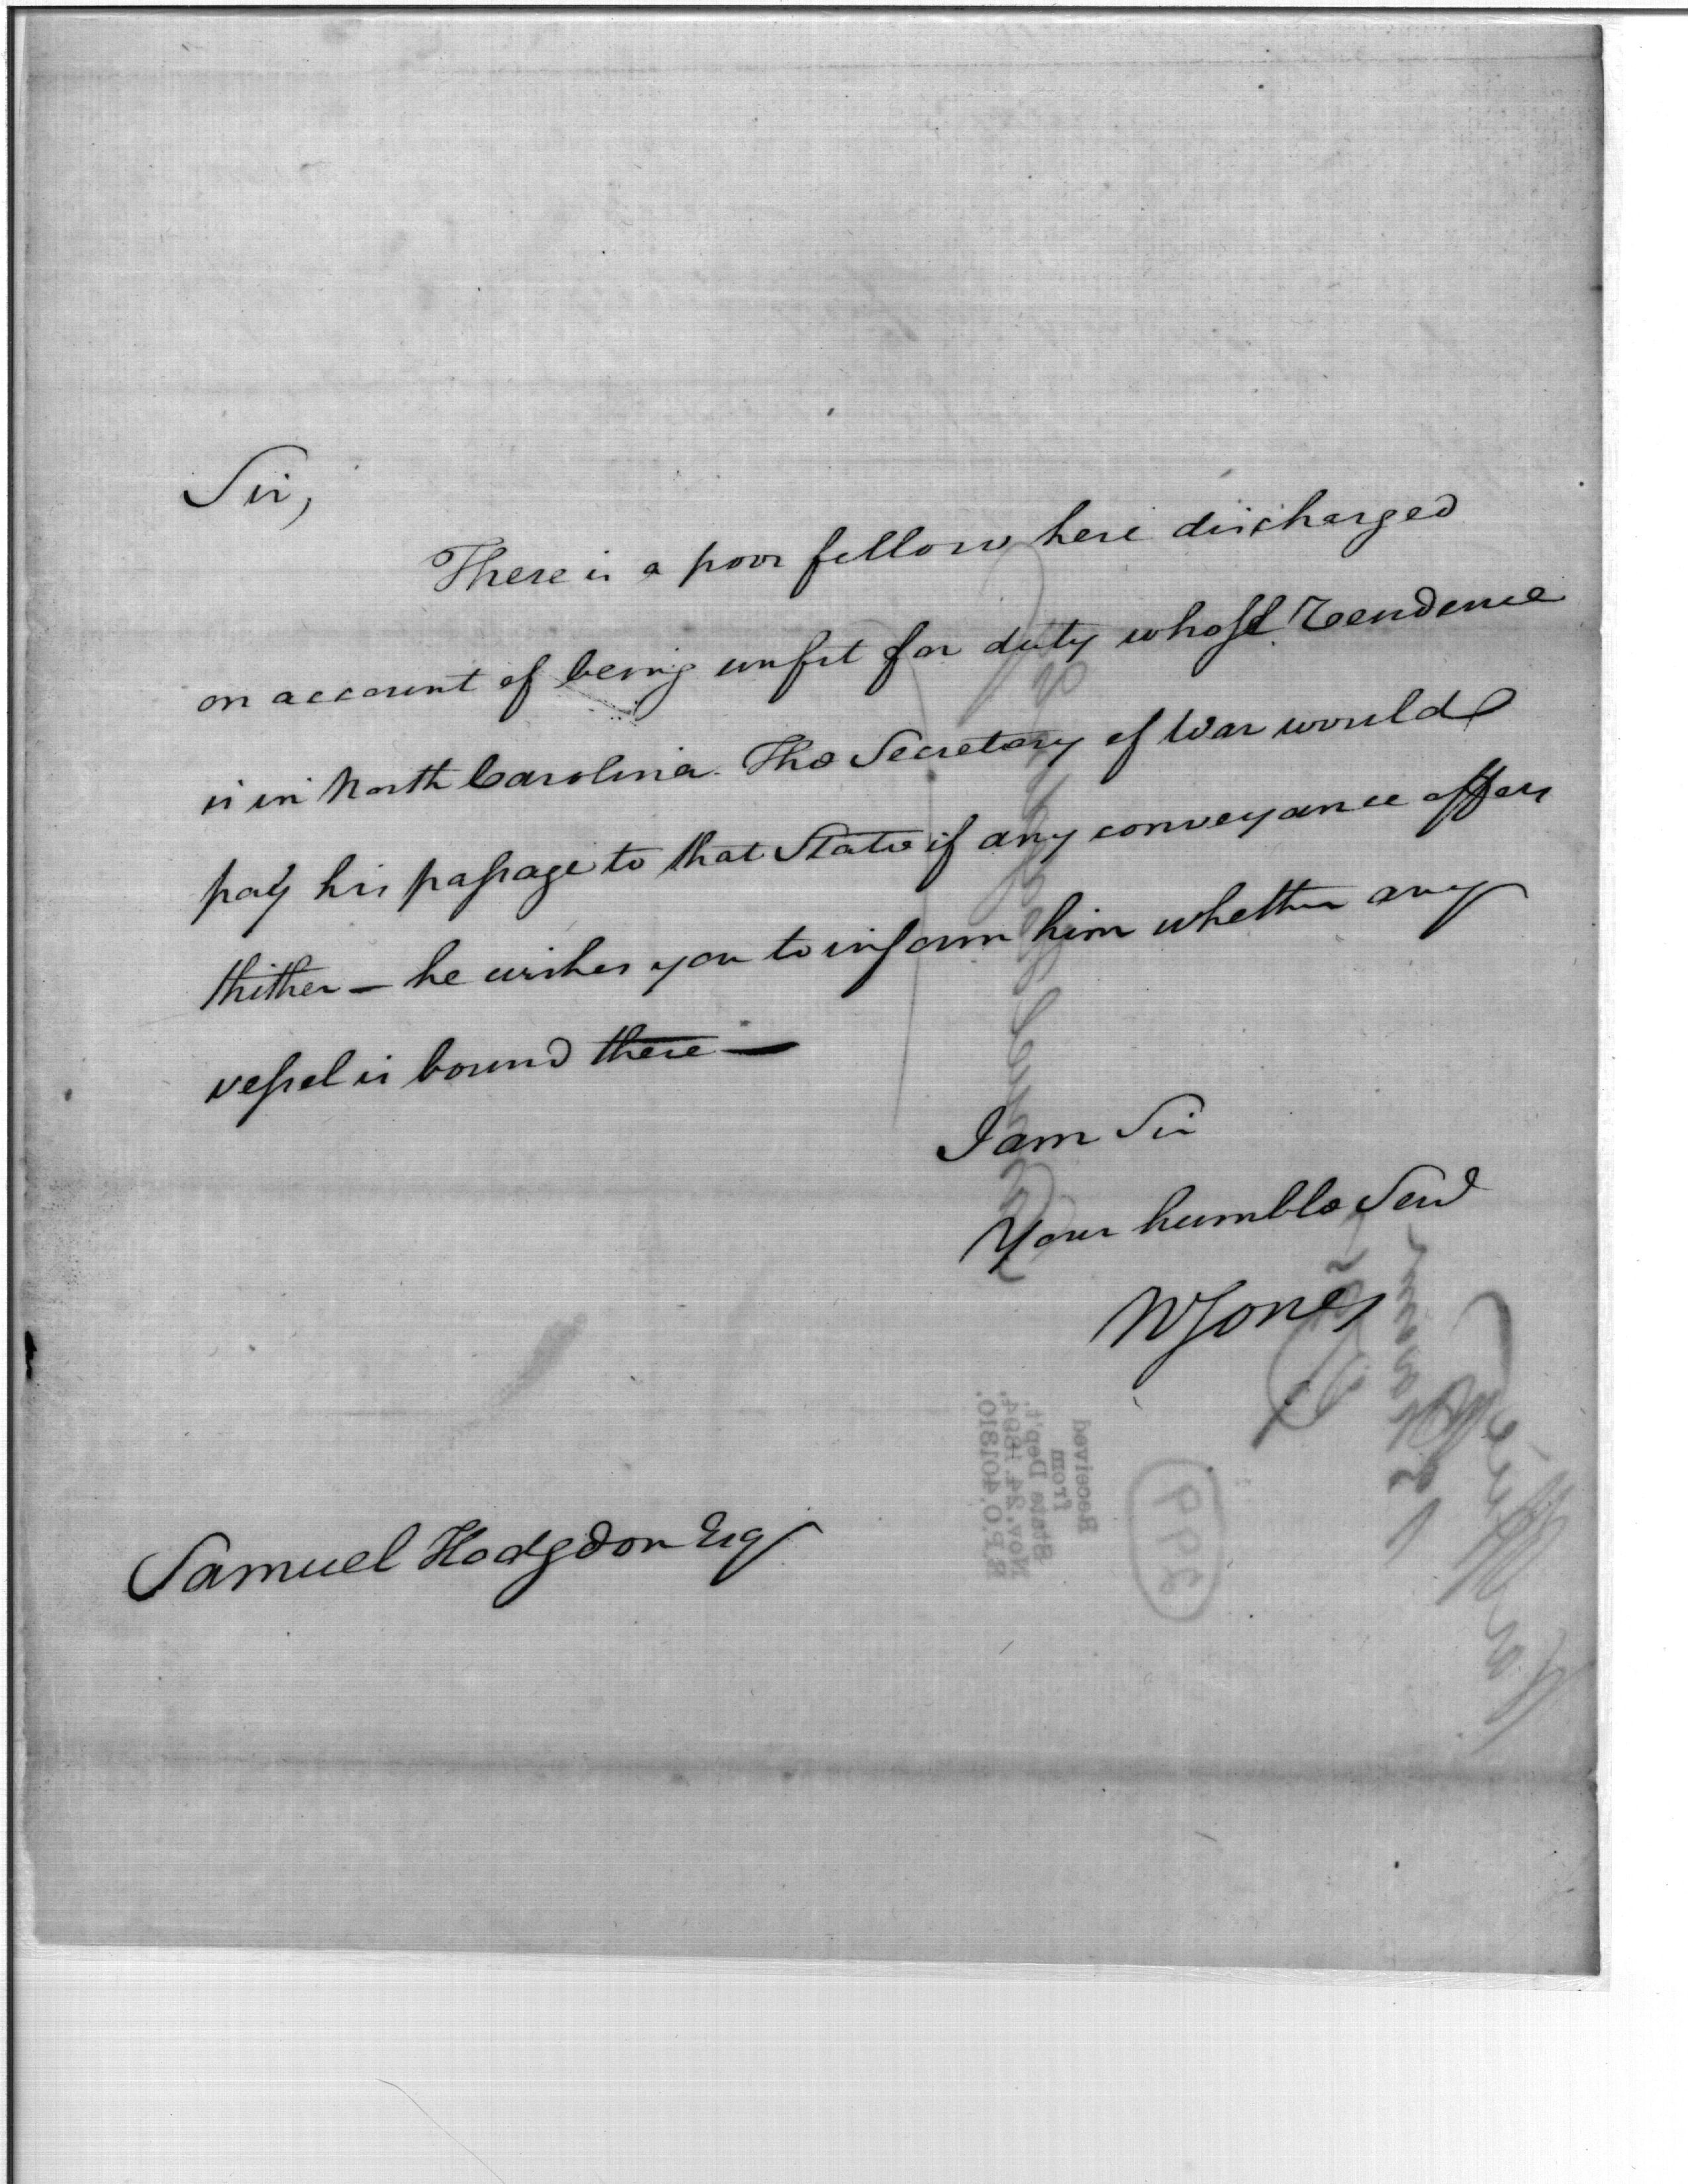 Sir,
There is a poor fellow here discharged
on account of being unfit for duty whose Residence
is in North Carolina. The Secretary of War would
pay his passage to that State if any conveyance offers
thither — he wishes you to inform him whether any
vessel is bound there —
I am Sir
Your humble Serv
W Jones
Samuel Hodgdon Esq
Received
from
State Dep't.
Nov. 24 1894.
R.P.O. 401810.